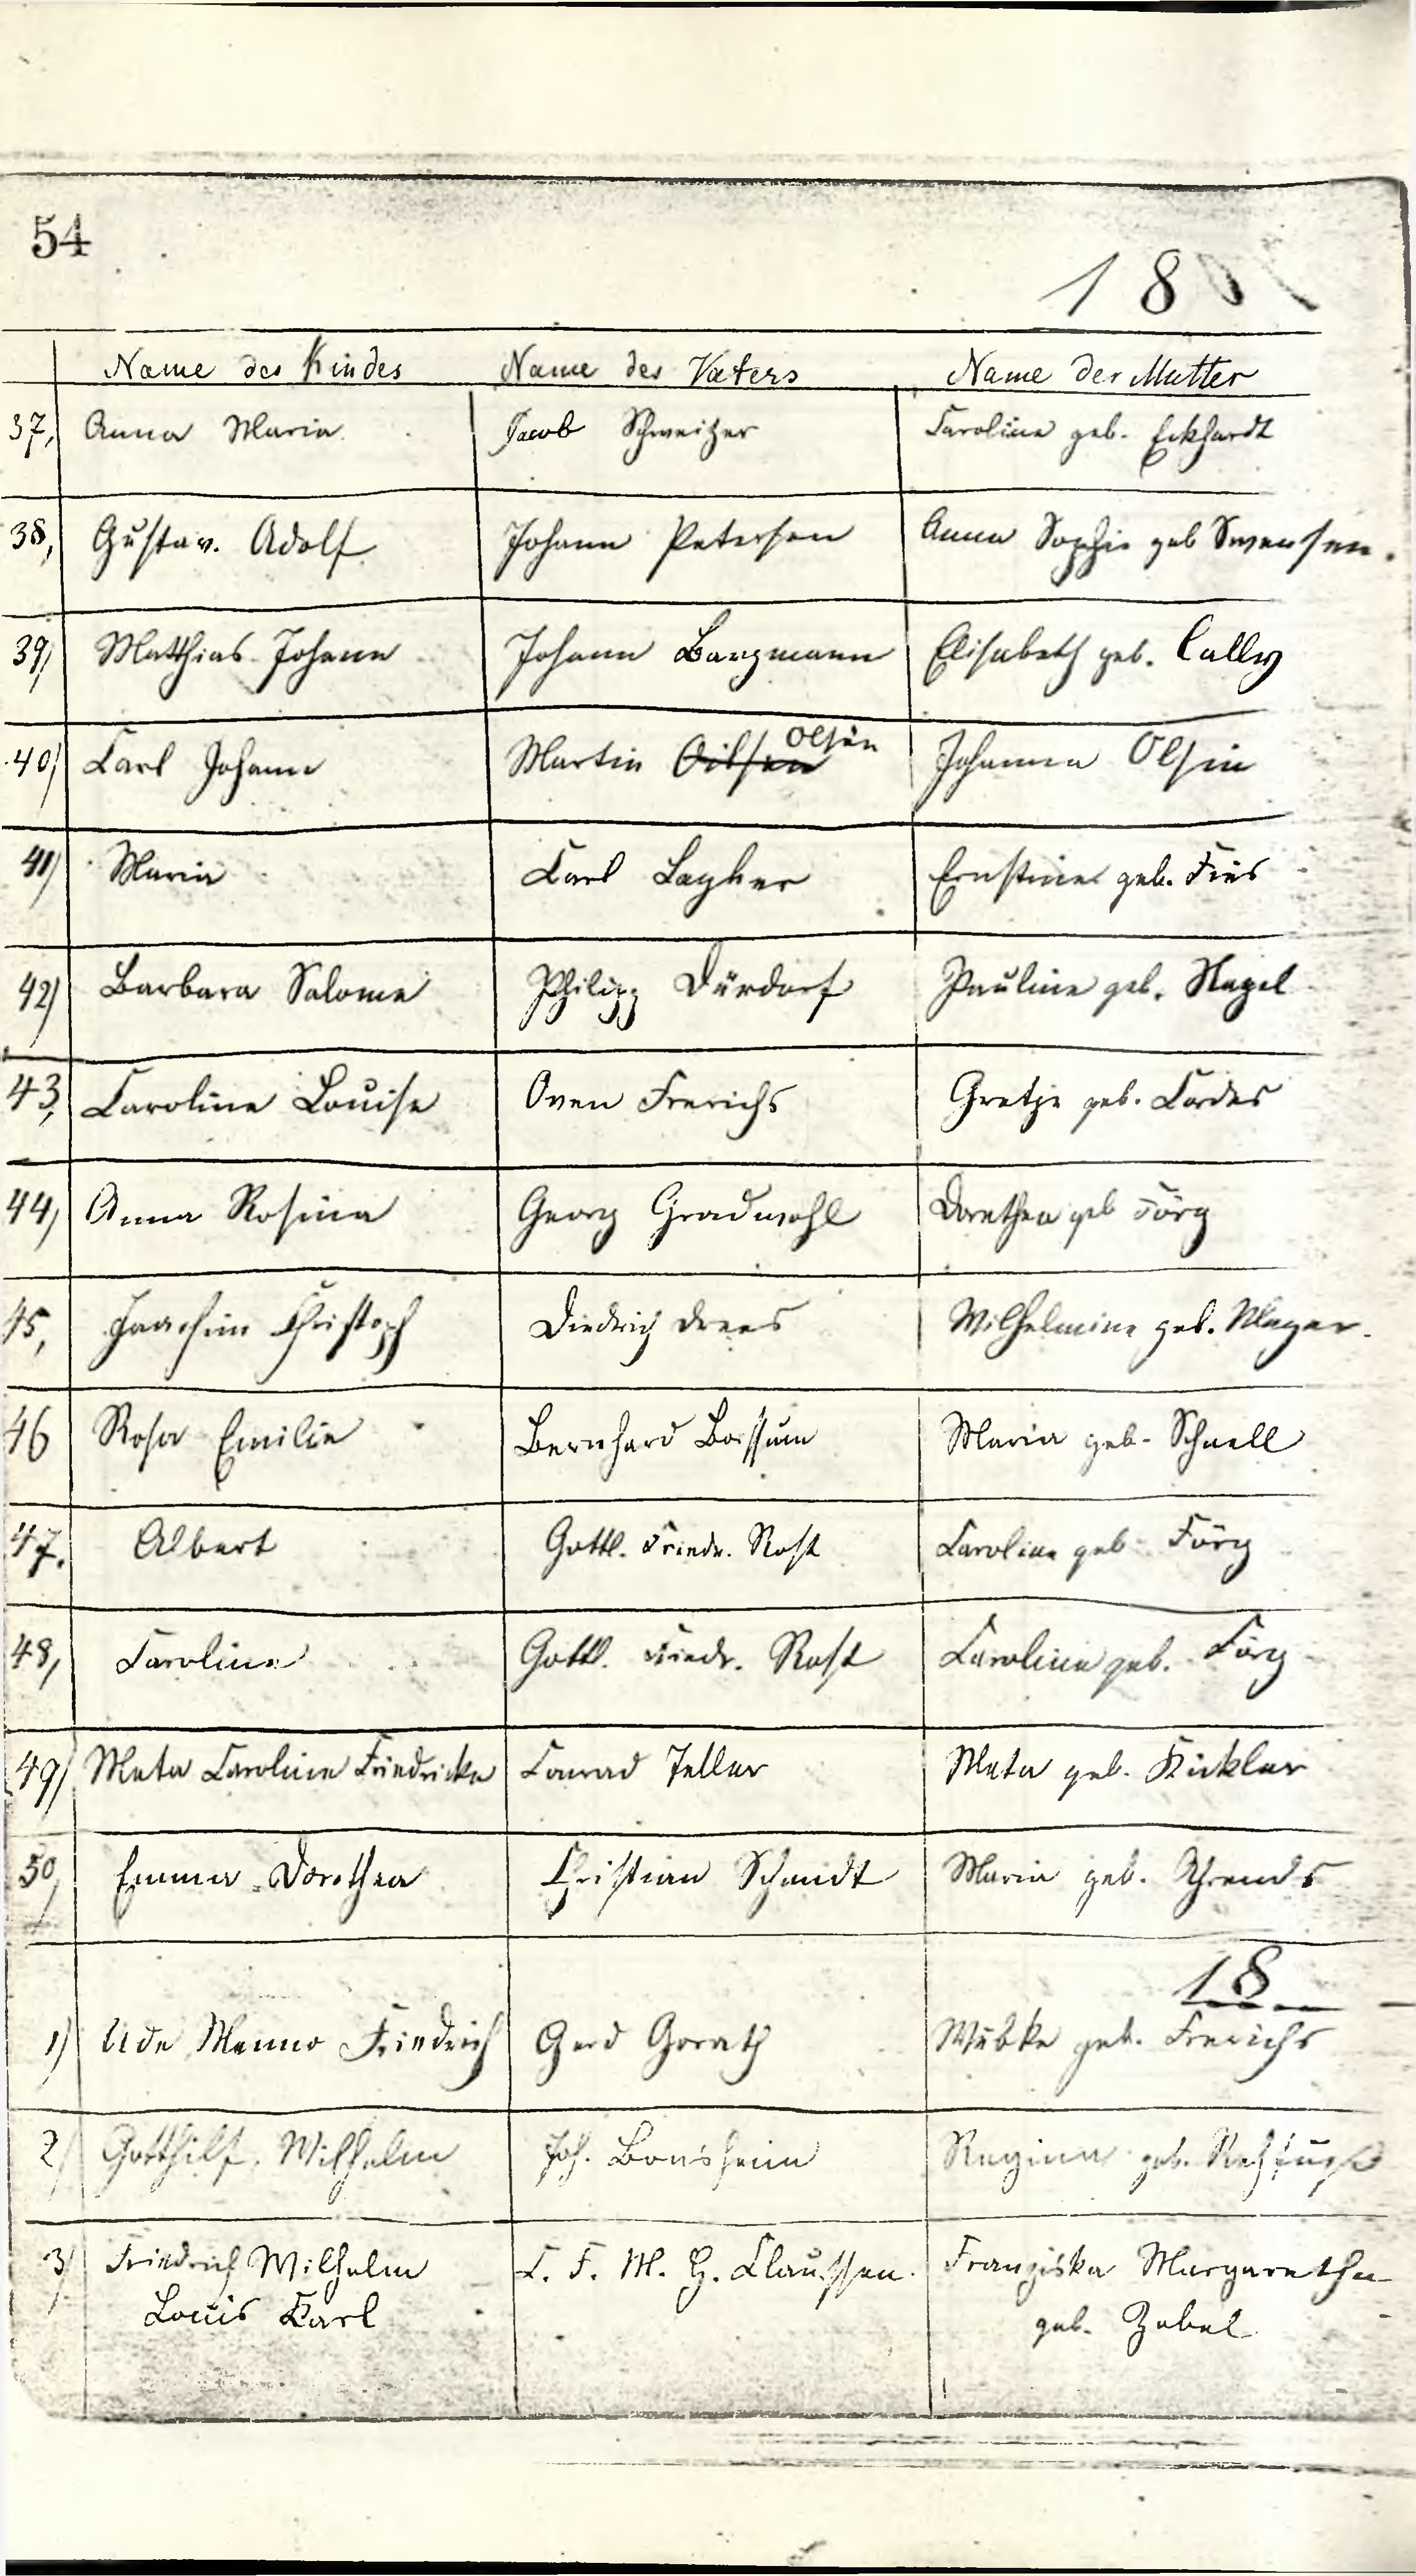 54
18
Name des Kindes Name des Vaters Name der Mutter
37, Anna Maria Jacob Schweitzer Caroline geb. Eckhardt
38, Gustav. Adolf Johann Petersen Anna Sophie geb Swensen.
39) Matthias Johann Johann Bargmann Elisabeth geb. Cally
Olsen
40) Carl Johann Martin Oilsen Johanna Olsin
41) Maria Carl Johanna geb. Fies
42) Barbara Salome Philipp Dürdorf Pauline geb. Nagel
43, Caroline Louise Onen Frerichs Gretje geb. Cordes
44) Anna Rosina Georg Gradwohl Dorothea geb Förg
45, Joachim Christoph Diedrich Drees Wilhelmine geb. Meyer.
46 Rosa Emilie Bernhard Bossum Maria geb. Schnell
47. Albert Gottl. Friedr. Rost Caroline geb Förg
48, Caroline Gottl. Friedr. Rost Caroline geb. Förg
49) Meta Caroline Friedricke Conrad Teller Meta geb. Kückler
50) Emma Dorothea Christian Schmidt Maria geb. Ahrends
18
1) Ude Menno Friedrich Gerd Gorath Wübke geb. Frerichs
2) Gotthilf. Wilhelm Joh. Bonsheim Regina geb. Rehfuß
3) Friedrich Wilhelm C. F. M. H. Claussen. Franziska Margaretha
Louis Carl geb. Zabel